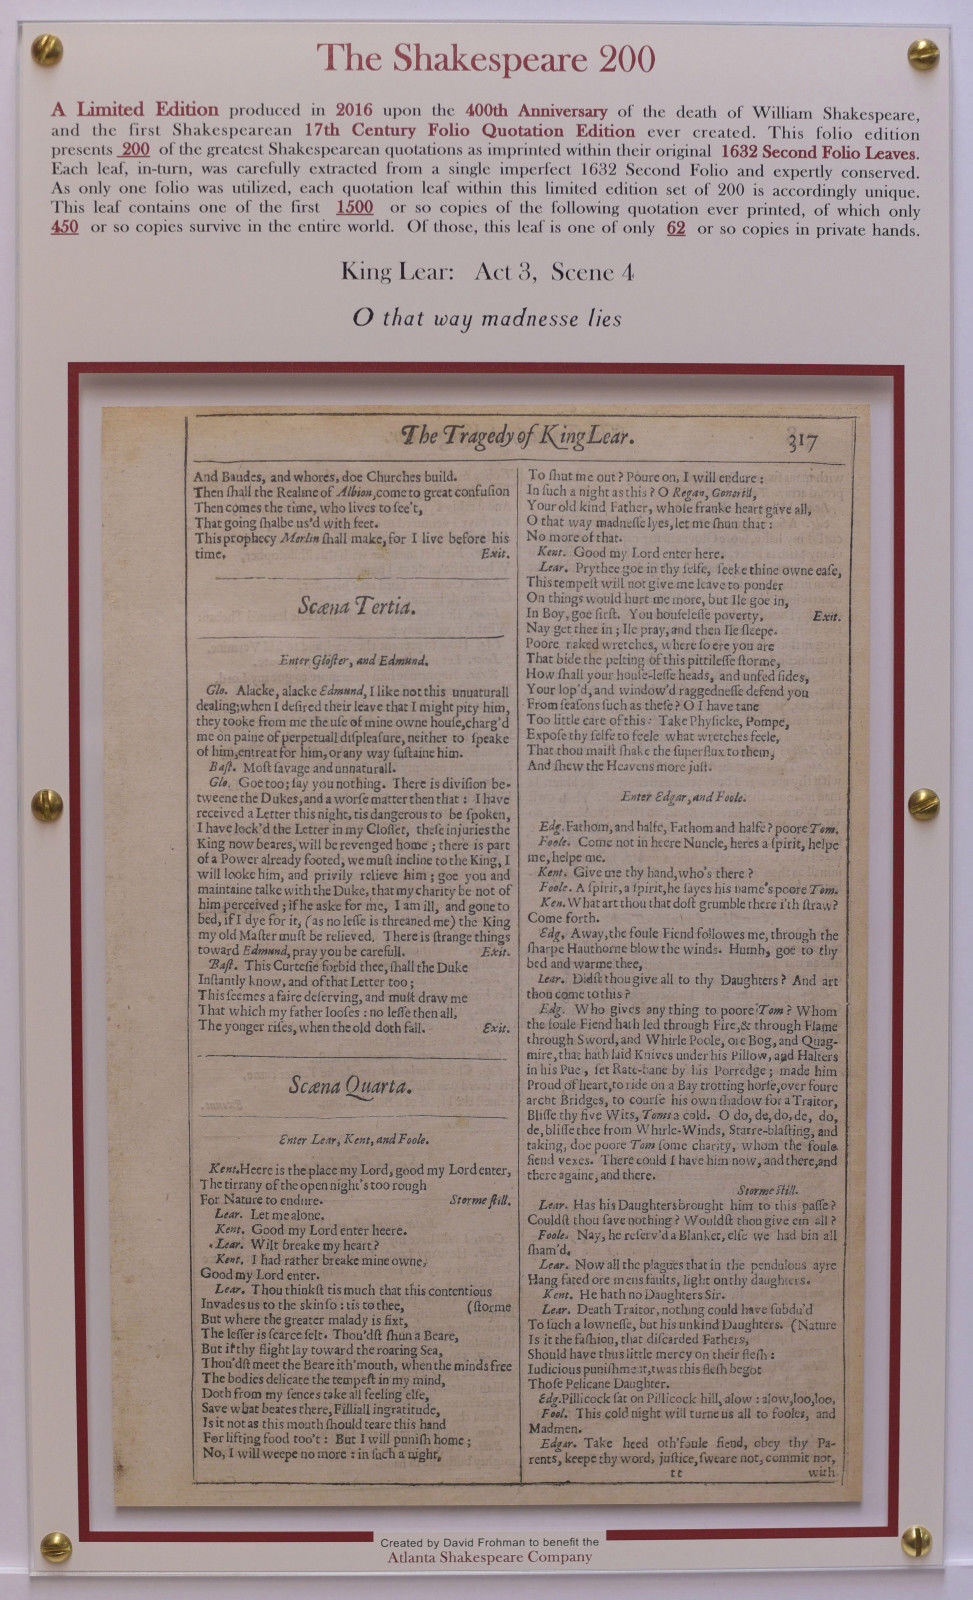 The Shakespeare 200
A Limited Edition produced in 2016 upon the 400th Anniversary of the death of William Shakespeare,
and the first Shakespearean 17th Century Folio Quotation Edition ever created. This folio edition
presents 200 of the greatest Shakespearean quotations as imprinted within their original 1632 Second Folio Leaves.
Each leaf, in-turn, was carefully extracted from a single imperfect 1632 Second Folio and expertly conserved.
As only one folio was utilized, each quotation leaf within this limited edition set of 200 is accordingly unique.
This leaf contains one of the first 1500 or so copies of the following quotation ever printed, of which only
450 or so copies survive in the entire world. Of those, this leaf is one of only 62 or so copies in private hands.
King Lear: Act 3, Scene 4
O that way madnesse lies
The Tragedy of King Lear. 317
And Baudes, and whores, doe Churches build.
Then ſhall the Realme of Albion, come to great confuſion
Then comes the time, who lives to ſee't,
That going ſhalbe us'd with feet.
This prophecy Merlin ſhall make, for I live before his
time. Exit.
Scæna Tertia.
Enter Gloſter, and Edmund.
Glo. Alacke, alacke Edmund, I like not this unnaturall
dealing; when I deſired their leave that I might pity him,
they tooke from me the uſe of mine owne houſe, charg'd
me on paine of perpetuall diſpleaſure, neither to ſpeake
of him, entreat for him, or any way ſuſtaine him.
Baſt. Moſt ſavage and unnaturall.
Glo. Goe too; ſay you nothing. There is diviſion be-
tweene the Dukes, and a worſe matter then that: I have
received a Letter this night, tis dangerous to be ſpoken,
I have lock'd the Letter in my Cloſet, theſe injuries the
King now beares, will be revenged home; there is part
of a Power already footed, we muſt incline to the King, I
will looke him, and privily relieve him; goe you and
maintaine talke with the Duke, that my charity be not of
him perceived; if he aske for me, I am ill, and gone to
bed, if I dye for it, (as no leſſe is threaned me) the King
my old Maſter muſt be relieved. There is ſtrange things
toward Edmund, pray you be carefull. Exit.
Baſt. This Curteſie forbid thee, ſhall the Duke
Inſtantly know, and of that Letter too;
This ſeemes a faire deſerving, and muſt draw me
That which my father looſes: no leſſe then all,
The yonger riſes, when the old doth fall. Exit.
Scæna Quarta.
Enter Lear, Kent, and Foole.
Kent. Heere is the place my Lord, good my Lord enter,
The tirrany of the open night's too rough
For Nature to endure. Storme ſtill.
Lear. Let me alone.
Kent. Good my Lord enter heere.
Lear. Wilt breake my heart?
Kent. I had rather breake mine owne,
Good my Lord enter.
Lear. Thou thinkſt tis much that this contentious
Invades us to the skin ſo: tis to thee, (ſtorme
But where the greater malady is fixt,
The leſſer is ſcarce felt. Thou'dſt ſhun a Beare,
But if thy flight lay toward the roaring Sea,
Thou'dſt meet the Beare ith'mouth, when the minds free
The bodies delicate the tempeſt in my mind,
Doth from my ſences take all feeling elſe,
Save what beates there, Filliall ingratitude,
Is it not as this mouth ſhould teare this hand
For lifting food too't: But I will puniſh home;
No, I will weepe no more: in ſuch a night,
To ſhut me out? Poure on, I will endure:
In ſuch a night as this? O Regan, Gonerill,
Your old kind Father, whoſe franke heart gave all,
O that way madneſſe lyes, let me ſhun that:
No more of that.
Kent. Good my Lord enter here.
Lear. Prythee goe in thy ſelfe, ſeeke thine owne eaſe,
This tempeſt will not give me leave to ponder
On things would hurt me more, but Ile goe in,
In Boy, goe firſt. You houſeleſſe poverty, Exit.
Nay get thee in; Ile pray, and then Ile ſleepe.
Poore naked wretches, where ſo ere you are
That bide the pelting of this pittileſſe ſtorme,
How ſhall your houſe-leſſe heads, and unfed ſides,
Your lop'd, and window'd raggedneſſe defend you
From ſeaſons ſuch as theſe? O I have tane
Too little care of this: Take Phyſicke, Pompe,
Expoſe thy ſelfe to feele what wretches feele,
That thou maiſt ſhake the ſuperflux to them,
And ſhew the Heavens more juſt.
Enter Edgar, and Foole.
Edg. Fathom, and halfe, Fathom and halfe? poore Tom.
Foole. Come not in heere Nuncle, heres a ſpirit, helpe
me, helpe me.
Kent. Give me thy hand, who's there?
Foole. A ſpirit, a ſpirit, he ſayes his name's poore Tom.
Ken. What art thou that doſt grumble there i'th ſtraw?
Come forth.
Edg. Away, the foule Fiend followes me, through the
ſharpe Hauthorne blow the winds. Humh, goe to thy
bed and warme thee,
Lear. Didſt thou give all to thy Daughters? And art
thou come to this?
Edg. Who gives any thing to poore Tom? Whom
the foule Fiend hath led through Fire, & through Flame
through Sword, and Whirle Poole, ore Bog, and Quag-
mire, that hath laid Knives under his Pillow, and Halters
in his Pue, ſet Rats-bane by his Porredge; made him
Proud of heart, to ride on a Bay trotting horſe, over foure
archt Bridges, to courſe his own ſhadow for a Traitor,
Bliſſe thy five Wits, Toms a cold. O do, de, do, de, do,
de, bliſſe thee from Whirle-Winds, Starre-blaſting, and
taking, doe poore Tom ſome charity, whom the foule
fiend vexes. There could I have him now, and there, and
there againe, and there.
Storme ſtill.
Lear. Has his Daughters brought him to this paſſe?
Couldſt thou ſave nothing? Wouldſt thou give em all?
Foole. Nay, he reſerv'd a Blanket, elſe we had bin all
ſham'd.
Lear. Now all the plagues that in the pendulous ayre
Hang fated ore mens faults, light on thy daughters.
Kent. He hath no Daughters Sir.
Lear. Death Traitor, nothing could have ſubdu'd
To ſuch a lowneſſe, but his unkind Daughters. (Nature
Is it the faſhion, that diſcarded Fathers,
Should have thus little mercy on their fleſh:
Iudicious puniſhment, twas this fleſh begot
Thoſe Pelicane Daughter.
Edg. Pillicock ſat on Pillicock hill, alow: alow, loo, loo,
Fool. This cold night will turne us all to fooles, and
Madmen.
Edgar. Take heed oth'foule fiend, obey thy Pa-
rents, keepe thy word, juſtice, ſweare not, commit not,
tt with
Created by David Frohman to benefit the
Atlanta Shakespeare Company